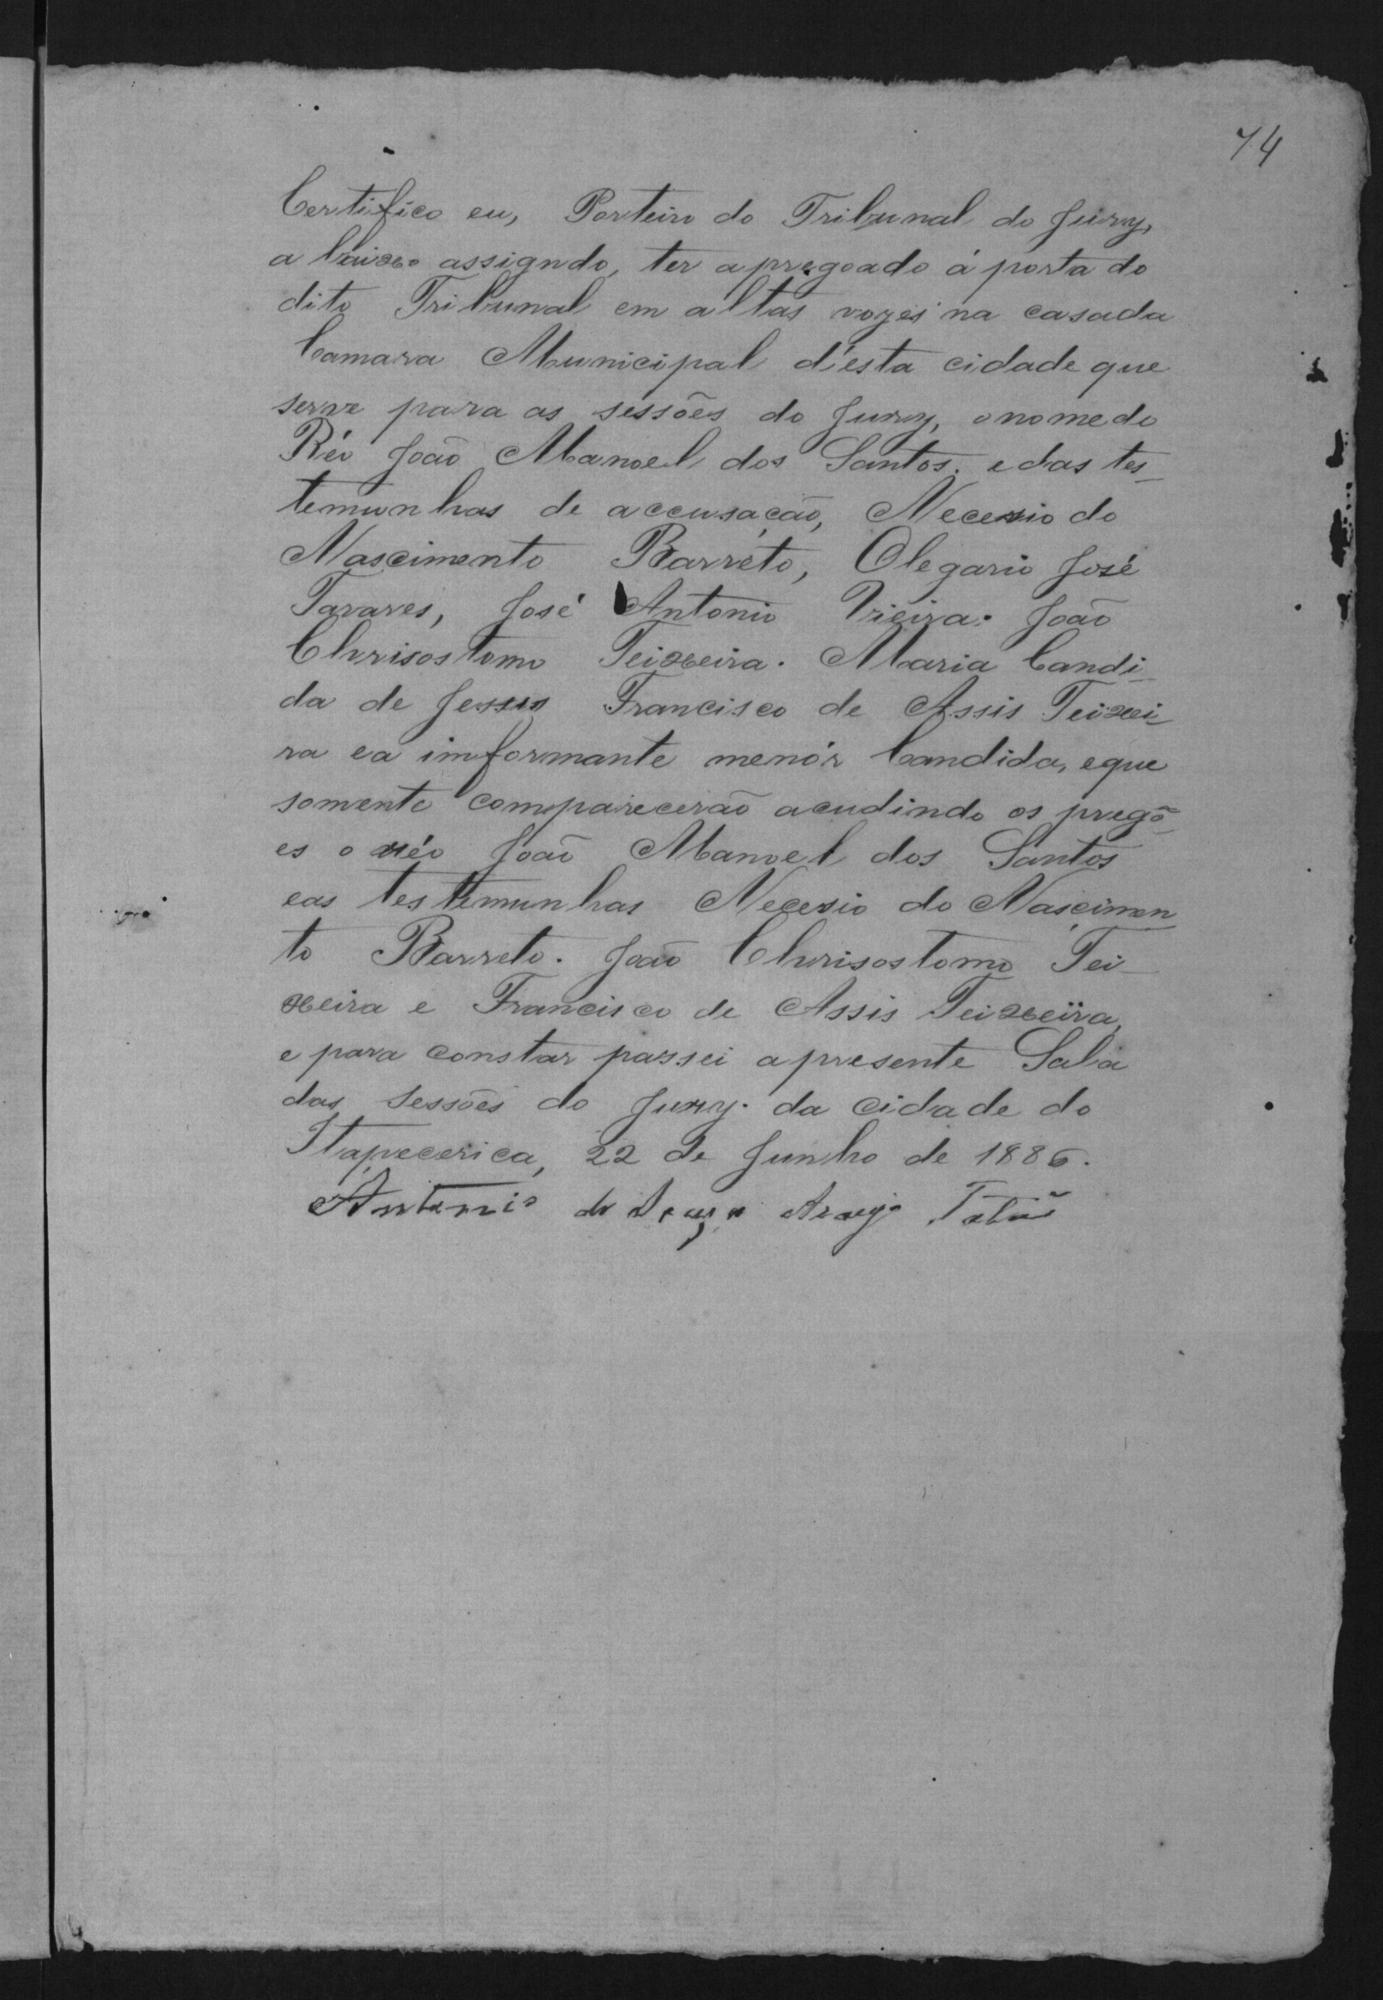 74
Certifico eu, Porteiro do Tribunal do Jury,
a baixo assigndo, ter apregoado á porta do
dito Tribunal em altas vozes na casa da
Camara Municipal d'esta cidade que
serve para as sessões do Jury, o nome do
Réo João Manoel dos Santos. e das tes_
temunhas de accusação, Necezio do
Nascimento Barrêto, Olegario José
Tavares, José Antonio Vieira. João
Chrisostomo Teixeira. Maria Candi_
da de Jesus Francisco de Assis Teixei_
ra e a imformante menór Candida, e que
somente comparecerão acudindo os pregõ_
es o réo João Manoel dos Santos
e as testemunhas Necezio do Nascimen_
to Barreto. João Chrisostomo Tei_
xeira e Francisco de Assis Teixeira,
e para constar passei a presente Sala
das Sessões do Jury. da cidade do
Itapecerica, 22 de Junho de 1886.
Antonio de Araujo